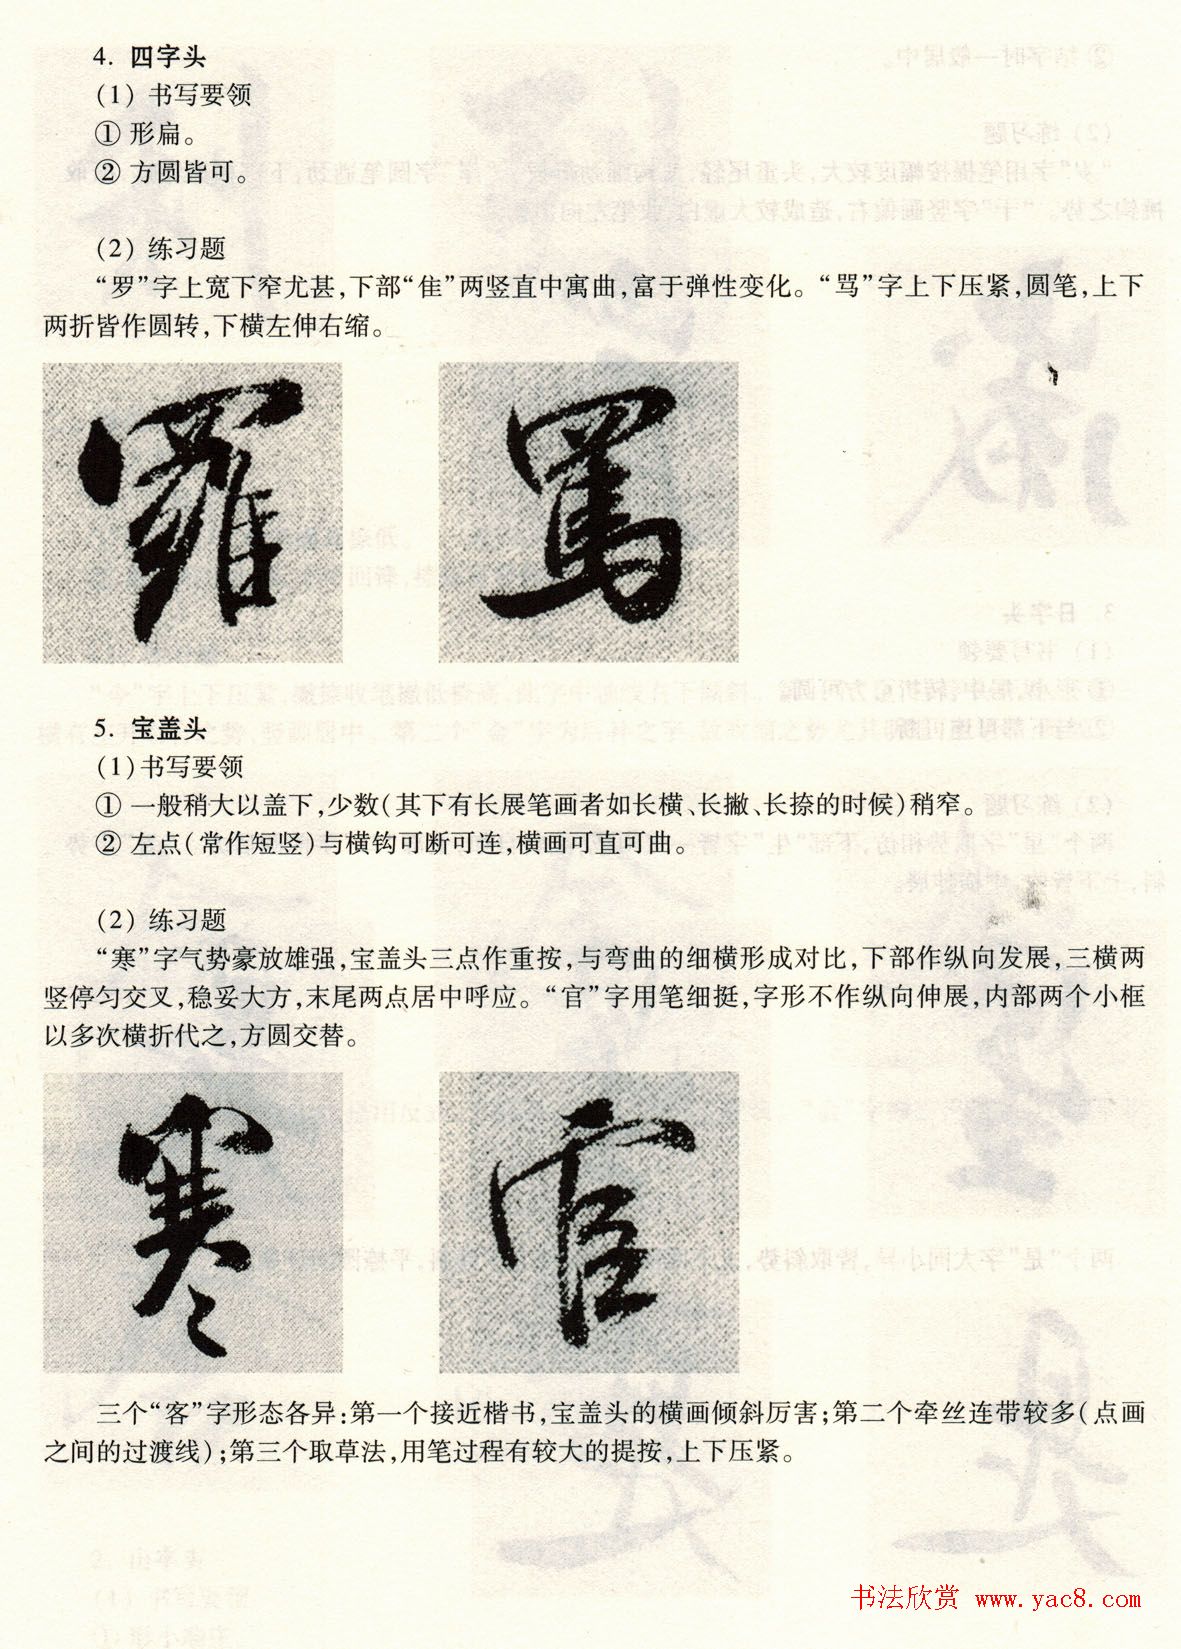 4. 四字头
(1) 书写要领
① 形扁。
② 方圆皆可。
(2) 练习题
“罗”字上宽下窄尤甚,下部“隹”两竖直中寓曲,富于弹性变化。“骂”字上下压紧,圆笔,上下
两折皆作圆转,下横左伸右缩。
羅 罵
5. 宝盖头
(1)书写要领
① 一般稍大以盖下,少数(其下有长展笔画者如长横、长撇、长捺的时候)稍窄。
② 左点(常作短竖)与横钩可断可连,横画可直可曲。
(2) 练习题
“寒”字气势豪放雄强,宝盖头三点作重按,与弯曲的细横形成对比,下部作纵向发展,三横两
竖停匀交叉,稳妥大方,末尾两点居中呼应。“官”字用笔细挺,字形不作纵向伸展,内部两个小框
以多次横折代之,方圆交替。
寒 官
三个“客”字形态各异:第一个接近楷书,宝盖头的横画倾斜厉害;第二个牵丝连带较多(点画
之间的过渡线);第三个取草法,用笔过程有较大的提按,上下压紧。
书法欣赏 www.yac8.com